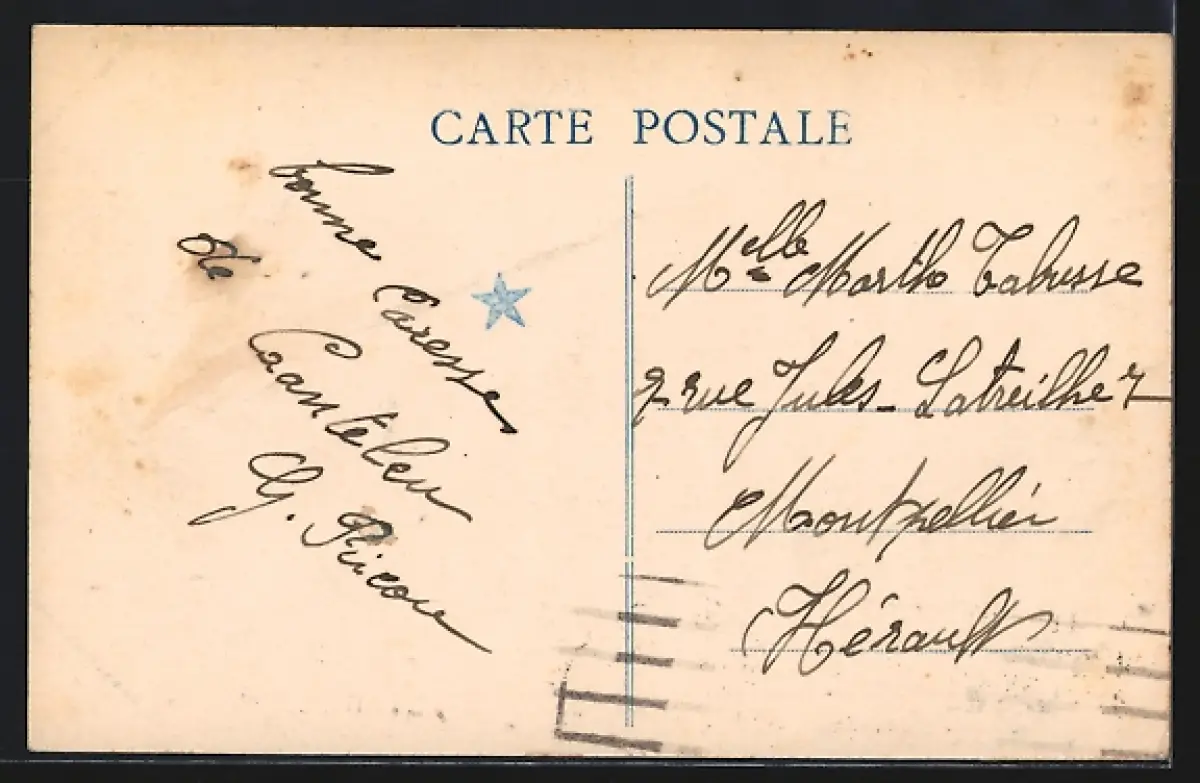 CARTE POSTALE
bonne Caresse
de
Canteleu
G. Ricou
Melle Marthe Tabusse
2 rue Jules-Latreilhe 7
Montpellier
Hérault